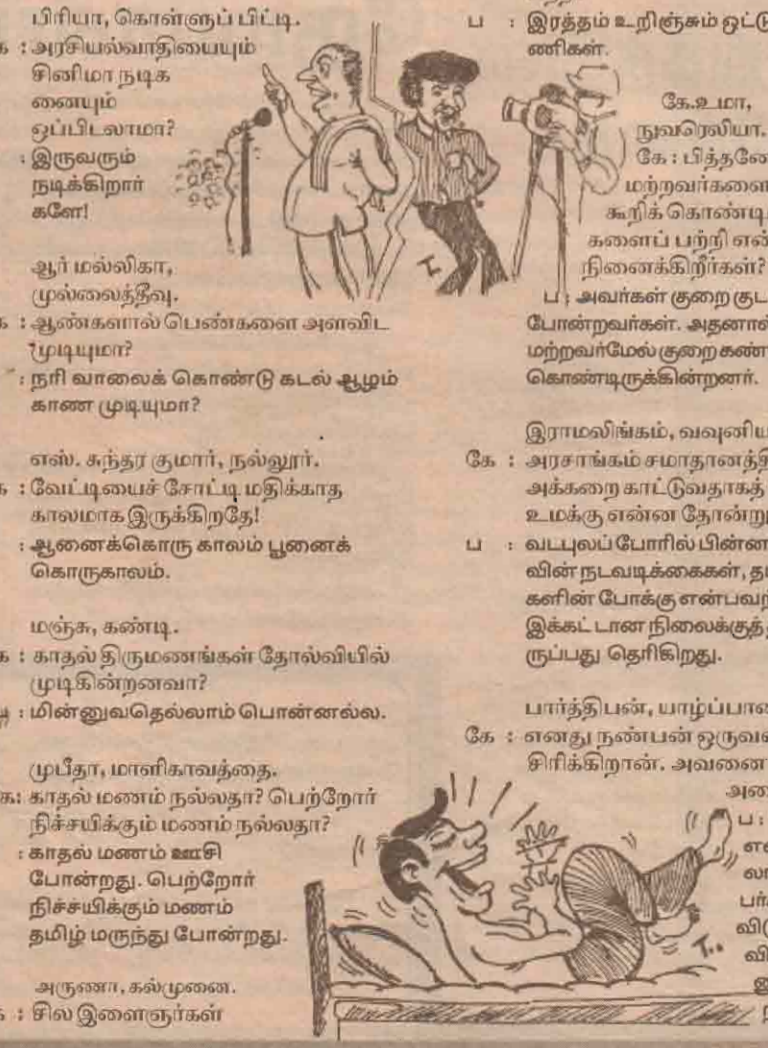 பிரியா, கொள்ளுப் பிட்டி.
: அரசியல்வாதியையும்
சினிமா நடிக
னையும்
ஒப்பிடலாமா?
: இருவரும்
நடிக்கிறார்
களே!
ஆர் மல்லிகா,
முல்லைத்தீவு.
: ஆண்களால் பெண்களை அளவிட
முடியுமா?
: நரி வாலைக் கொண்டு கடல் ஆழம்
காண முடியுமா?
எஸ். சுந்தர குமார், நல்லூர்.
: வேட்டியைச் சோட்டி மதிக்காத
காலமாக இருக்கிறதே!
: ஆனைக்கொரு காலம் பூனைக்
கொருகாலம்.
மஞ்சு, கண்டி.
: காதல் திருமணங்கள் தோல்வியில்
முடிகின்றனவா?
: மின்னுவதெல்லாம் பொன்னல்ல.
முபீதா, மாளிகாவத்தை.
: காதல் மணம் நல்லதா? பெற்றோர்
நிச்சயிக்கும் மணம் நல்லதா?
: காதல் மணம் ஊசி
போன்றது. பெற்றோர்
நிச்சயிக்கும் மணம்
தமிழ் மருந்து போன்றது.
அருணா, கல்முனை.
: சில இளைஞர்கள்
ப : இரத்தம் உறிஞ்சும் ஒட்டு
ணிகள்.
கே.உமா,
நுவரெலியா.
கே : பித்தனே
மற்றவர்களை
கூறிக் கொண்டி
களைப் பற்றி என்
நினைக்கிறீர்கள்?
ப : அவர்கள் குறை குட
போன்றவர்கள். அதனால்
மற்றவர்மேல் குறை கண்
கொண்டிருக்கின்றனர்.
இராமலிங்கம், வவுனிய
கே : அரசாங்கம் சமாதானத்தி
அக்கறை காட்டுவதாகத்
உமக்கு என்ன தோன்று
ப : வடபுலப் போரில் பின்ன
வின் நடவடிக்கைகள், த
களின் போக்கு என்பவற்
இக்கட்டான நிலைக்குத்
ருப்பது தெரிகிறது.
பார்த்திபன், யாழ்ப்பான
கே : எனது நண்பன் ஒருவன்
சிரிக்கிறான். அவனை
ப :